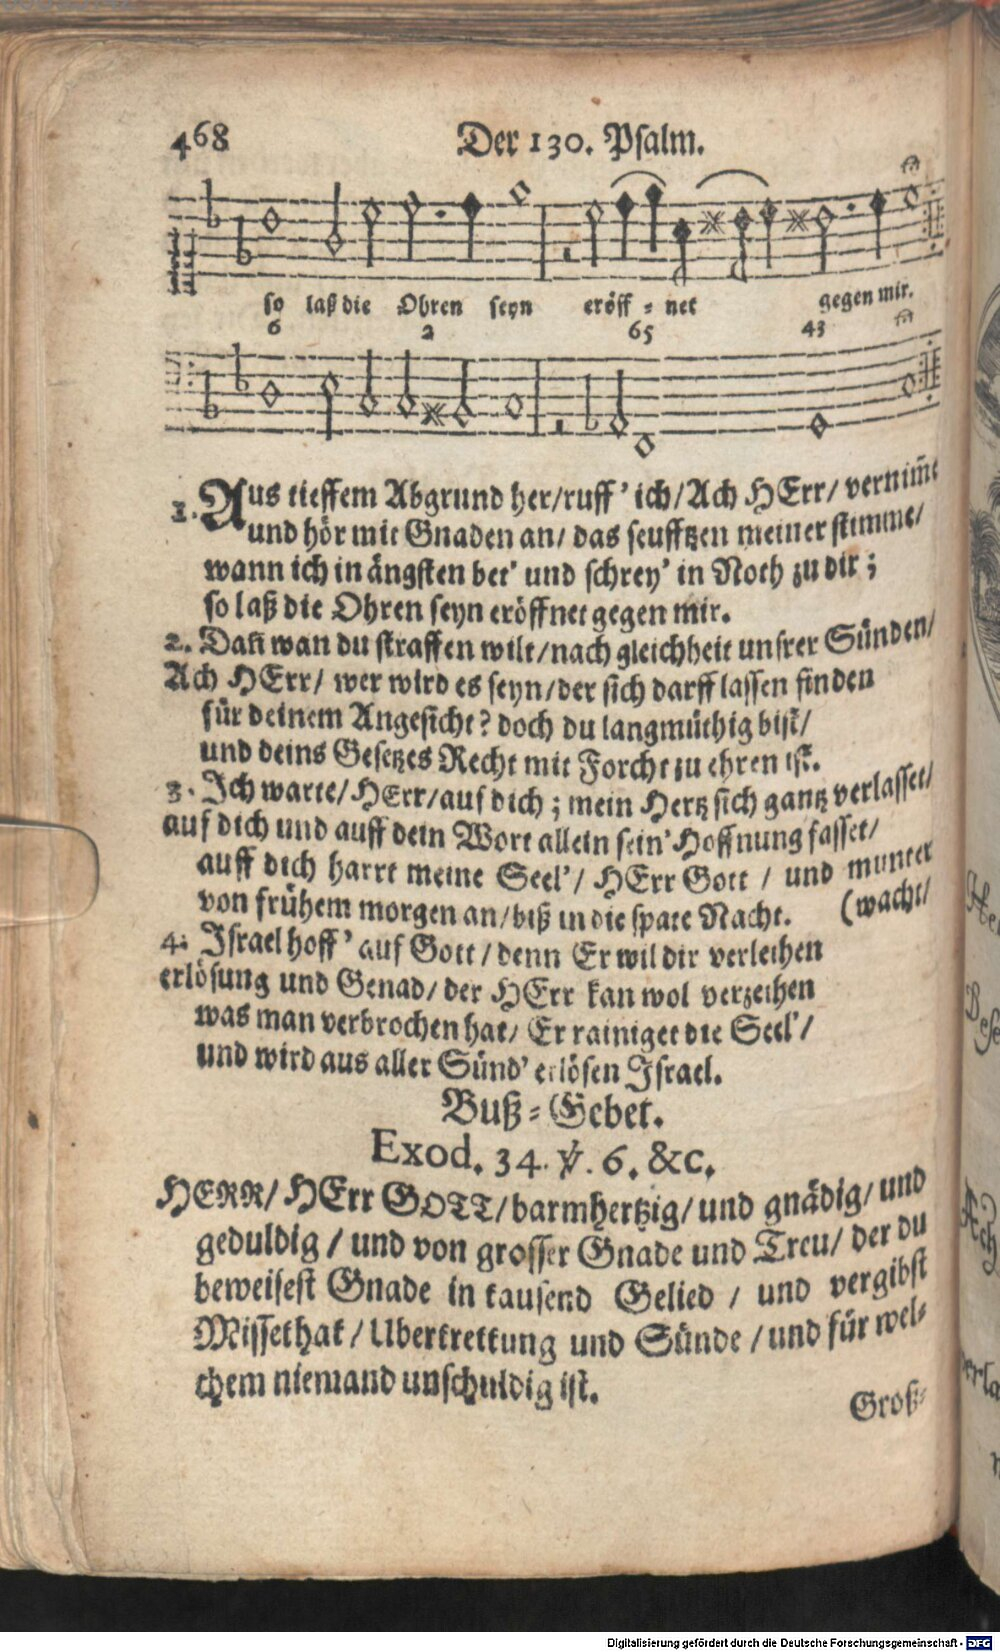 468 Der 130. Psalm.
so laß die Ohren seyn eröff- net gegen mir.
6 2 65 43
1. Aus tieffem Abgrund her/ruff' ich/Ach HErr/ vernim̃e
und hör mit Gnaden an/ das seufftzen meiner stimme/
wann ich in ängsten bet' und schrey' in Noth zu dir;
so laß die Ohren seyn eröffnet gegen mir.
2. Dañ wan du straffen wilt/nach gleichheit unsrer Sünden/
Ach HErr/ wer wird es seyn/der sich darff lassen finden
für deinem Angesicht? doch du langmüthig bist/
und deins Gesetzes Recht mit Forcht zu ehren ist.
3. Ich warte/HErr/auf dich; mein Hertz sich gantz verlasset/
auf dich und auff dein Wort allein sein' Hoffnung fasset/
auff dich harrt meine Seel'/ HErr Gott / und munter
von frühem morgen an/biß in die spate Nacht. (wacht/
4. Israel hoff' auf Gott/denn Er wil dir verleihen
erlösung und Genad/der HErr kan wol verzeihen
was man verbrochen hat/ Er rainiget die Seel'/
und wird aus aller Sünd' erlösen Israel.
Buß-Gebet.
Exod. 34. ℣. 6. &c.
HERR/ HErr GOTT/barmhertzig/ und gnädig/ und
geduldig / und von grosser Gnade und Treu/ der du
beweisest Gnade in tausend Gelied / und vergibst
Missethat/Ubertrettung und Sünde/und für wel-
chem niemand unschuldig ist.
Groß-
Digitalisierung gefördert durch die Deutsche Forschungsgemeinschaft - DFG